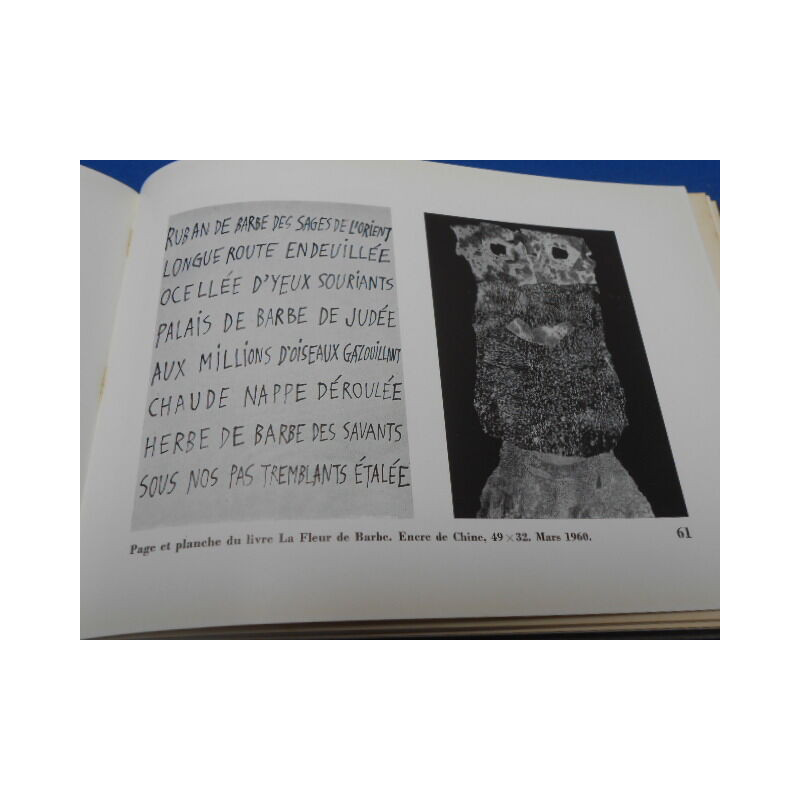 RUBAN DE BARBE DES SAGES DE L'ORIENT
LONGUE ROUTE ENDEUILLÉE
OCELLÉE D'YEUX SOURIANTS
PALAIS DE BARBE DE JUDÉE
AUX MILLIONS D'OISEAUX GAZOUILLANT
CHAUDE NAPPE DÉROULÉE
HERBE DE BARBE DES SAVANTS
SOUS NOS PAS TREMBLANTS ÉTALÉE
Page et planche du livre La Fleur de Barbe. Encre de Chine, 49 × 32. Mars 1960.
61